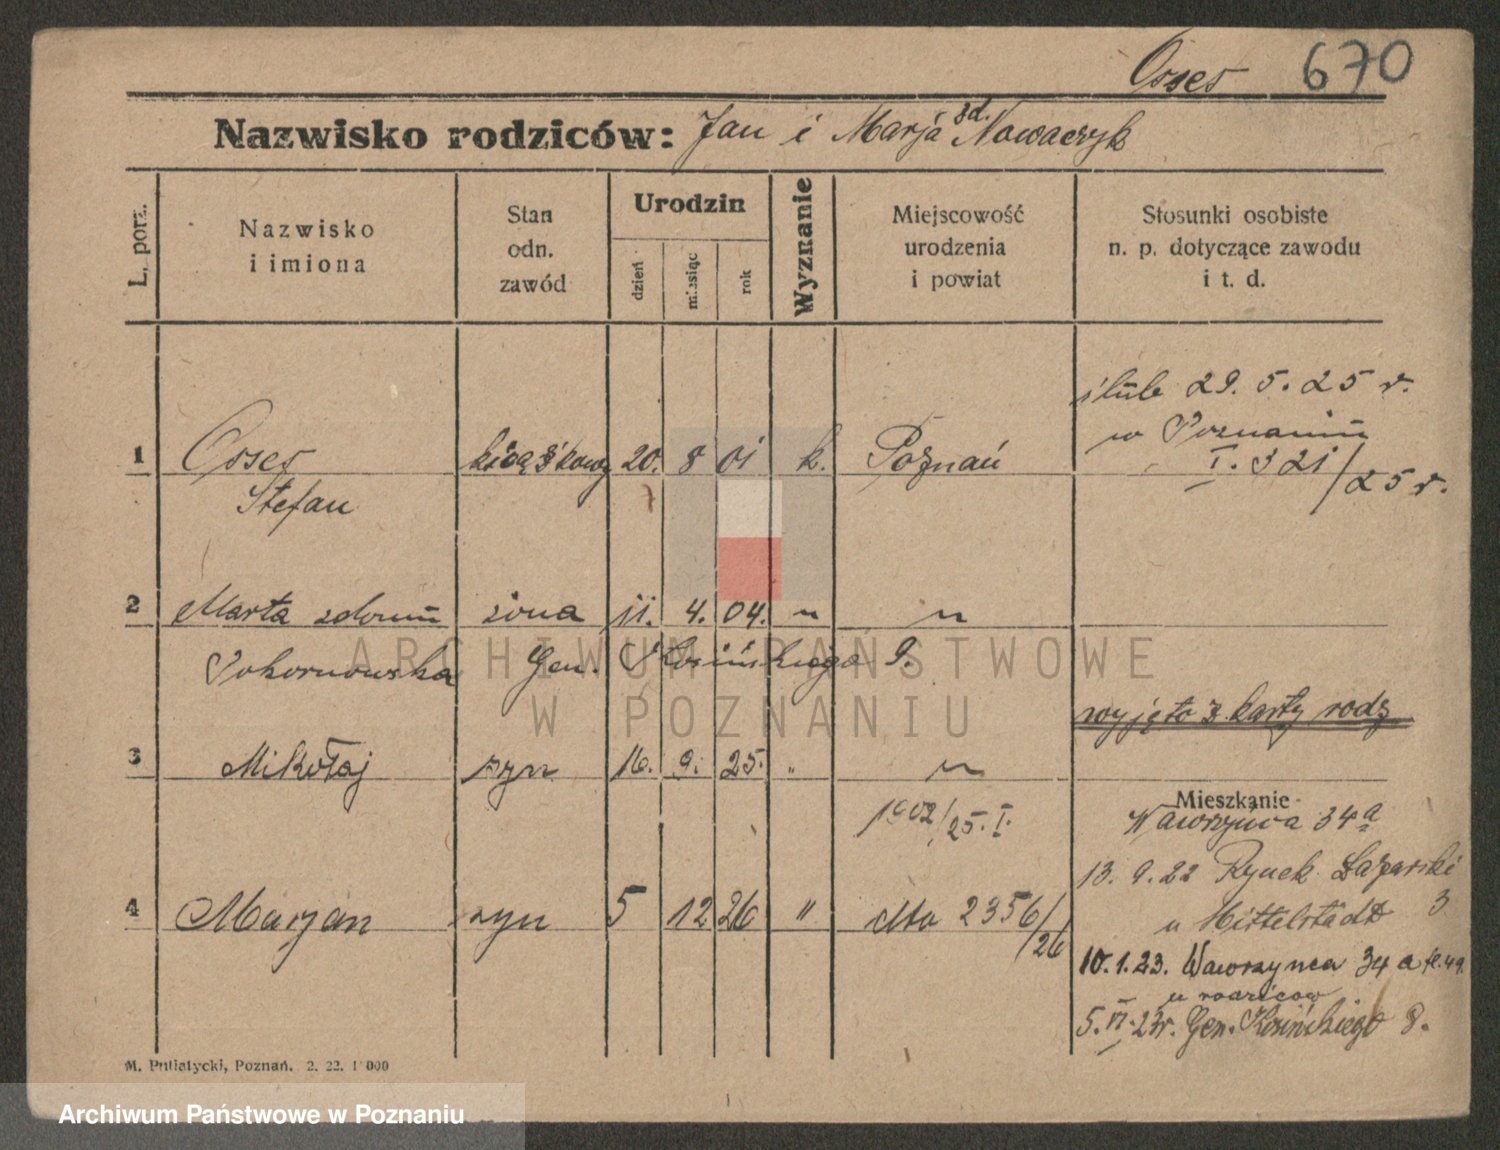 Osses 670
Nazwisko rodziców: Jan i Marja zd. Nowaczyk
L. porz.
Nazwisko
i imiona
Stan
odn.
zawód
Urodzin
dzień
miesiąc
rok
Wyznanie
Miejscowość
urodzenia
i powiat
Stosunki osobiste
n. p. dotyczące zawodu
i t. d.
ślub 29. 5. 25 r.
w Poznaniu
I. 321/25 r.
1 Osses 20. 8 01 k. Poznań
Stefan
2 Marta z domu żona 11. 4. 04. " "
Pohornowska Gen. Kosińskiego 9.
wyjęto z karty rodz
3 Mikołaj syn 16. 9. 25. " "
1902/25. I.
Mieszkanie
Wawrzyńca 34a
13. 9. 22 Rynek Łazarski
u Mittelstädt 3
4 Marjan syn 5 12 26 " dto 2356/26
10. 1. 23. Wawrzyńca 34 a
u rodziców
5. VI. 23r. Gen. Kosińskiego 8.
M. Putiatycki, Poznań. 2. 22. 1 000
ARCHIWUM PAŃSTWOWE
W POZNANIU
Archiwum Państwowe w Poznaniu